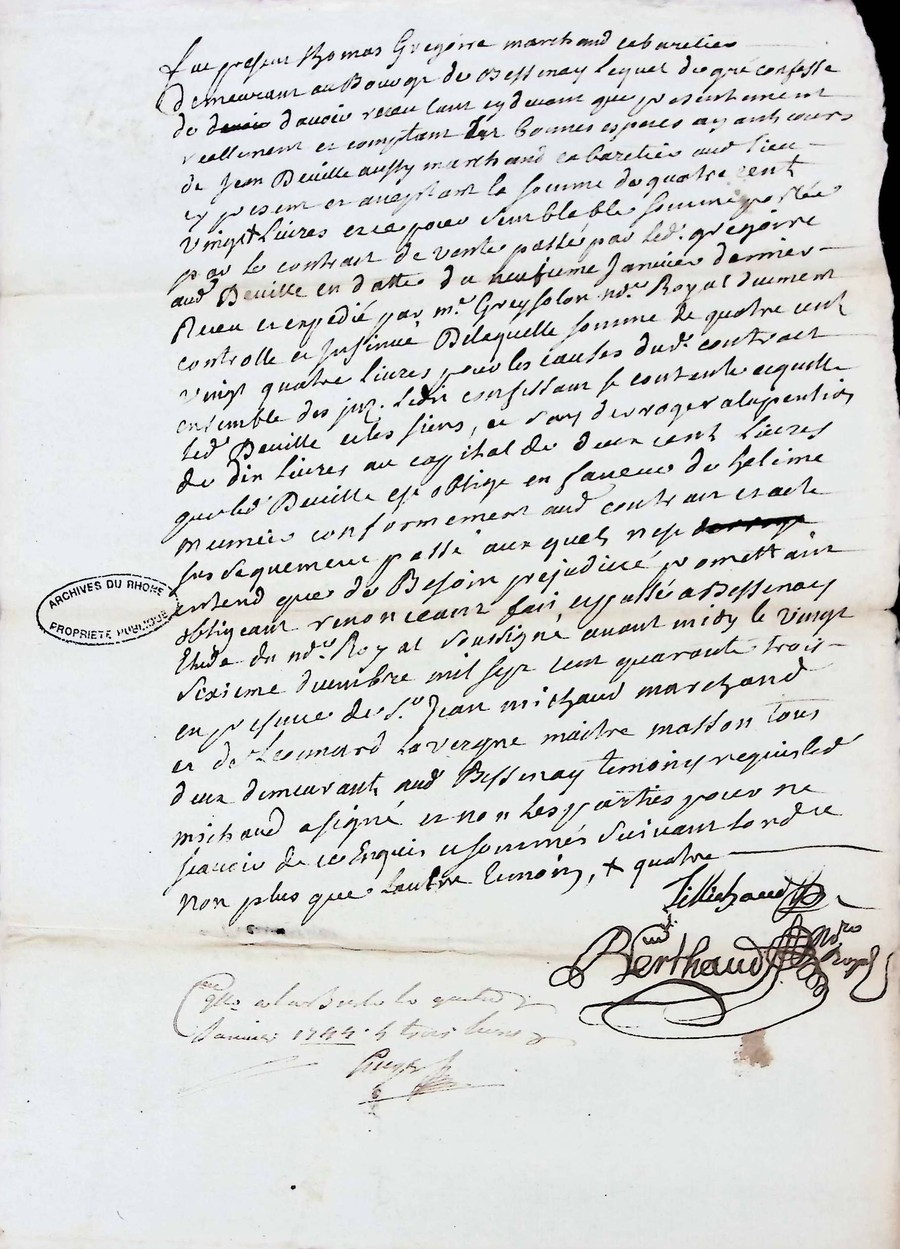 fut present Thomas Gregoire marchand cabaretier
demeurant au Bourg de Bessenay lequel de gré confesse
de d'avoir receu tant cydevant que presentement
reallement et comptant en bonnes especes ayant cours
de Jean Deville aussy marchand cabaretier aud. lieu
cy present et acceptant la somme de quatre cent
vingt + livres et ce pour semblable somme portée
par le contrat de vente passé par led. gregoire
aud. Deville en datte du neufieme Janvier dernier
Receu et expédié par me. Greysolon nore. Royal duement
controllé et Insinué De laquelle somme de quatre cent
vingt quatre livres pour les causes dud. contract
ensemble des led. confessant se contente et quitte
led. Deville et les siens, et sans deroger a la pention
de dix livres au capital de deux cent livres
que led. Deville est obligé en faveur de
Meunier conformement aud. contrat et acte
subsequement passé auxquels n'est
entend que de Besoin préjudicié promettant
obligeant renonceant fait et passé a Bessenay
Etude du nore. Royal soussigné avant midy le vingt
sixieme decembre mil sept cent quarante trois
en presence de sr. Jean michaud marchand
et de Leonnard Lavergne maitre masson tous
deux demeurant aud. Bessenay temoins requis led.
michaud a signé et non les parties pour ne
scavoir de ce Enquis et sommés suivant l'ordre
non plus que l'autre temoin, + quatre
J Michaud
Berthaud nore
Royal
ARCHIVES DU RHONE
PROPRIETE PUBLIQUE
Cllé a larbresle le quatre
Janvier 1744. trois livres